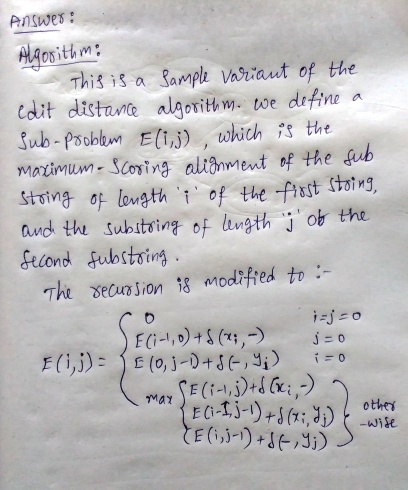 Answer:
Algorithm:
This is a Sample Variant of the
edit distance algorithm. we define a
Sub-Problem E(i,j), which is the
maximum-Scoring alignment of the Sub
String of length 'i' of the first String,
and the substring of length 'j' of the
Second Substring.
The recursion is modified to :-
E(i,j) = { 0 i=j=0
E(i-1,0)+δ(xi,-) j=0
E(0,j-1)+δ(-,yj) i=0
max { E(i-1,j)+δ(xi,-)
E(i-1,j-1)+δ(xi,yj)
E(i,j-1)+δ(-,yj) } other
-wise